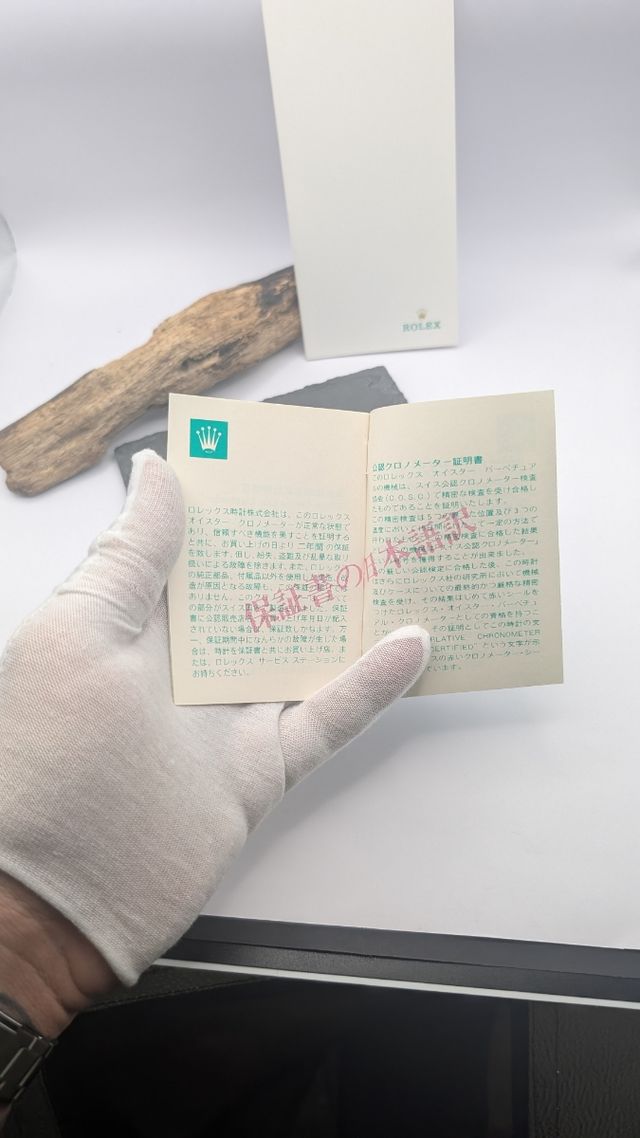 ROLEX
ロレックス時計株式会社は、このロレックス
オイスター クロノメーターが正常な状態で
あり、信頼すべき機能を果すことを証明する
と共に、お買い上げの日より 二年間 の保証
を致します。但し、紛失、盗難及び乱暴な取り
扱いによる故障を除きます。また、ロレックス
の純正部品、付属品以外を使用し
造が原因となる故障も、この保証
ありません。この
の部分がスイス
書に公認販売店 年月日が記入
されていない場合は、保証致しかねます。万
一、保証期間中になんらかの故障が生じた場
合は、時計を保証書と共にお買い上げ店、ま
たは、ロレックス サービス ステーションに
お持ちください。
保証書の日本語訳
公認クロノメーター証明書
このロレックス オイスター パーペチュア
の機械は、スイス公認クロノメーター検査
(C.O.S.C.)で精密な検査を受け合格し
たものであることを証明いたします。
この精密検査は5つの 位置及び3つの
温度において 一定の方法で
行 検査に合格した結果
スイス公認クロノメーター」
を獲得することが出来ました。
の厳しい公認検定に合格した後、この時計
はさらにロレックス社の研究所において機械
及びケースについての最終的かつ厳格な精密
検査を受け、その結果はじめて赤いシールを
つけたロレックス・オイスター・パーペチュ
アル・クロノメーターとしての資格を持つこ
とが その証明としてこの時計の文
RLATIVE CHRONOMETER
CERTIFIED" という文字が示
スの赤いクロノメーター・シー
ています。